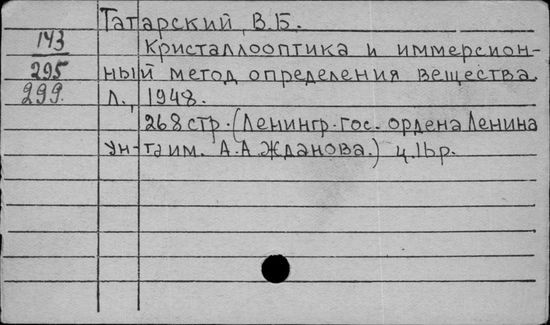 Татарский, В.Б.
143
Кристаллооптика и иммерсион-
295
ный метод определения вещества.
299.
Л., 1948.
268 стр. (Ленингр. гос. ордена Ленина
ун-т им. А.А. Жданова.) ц. 16 р.